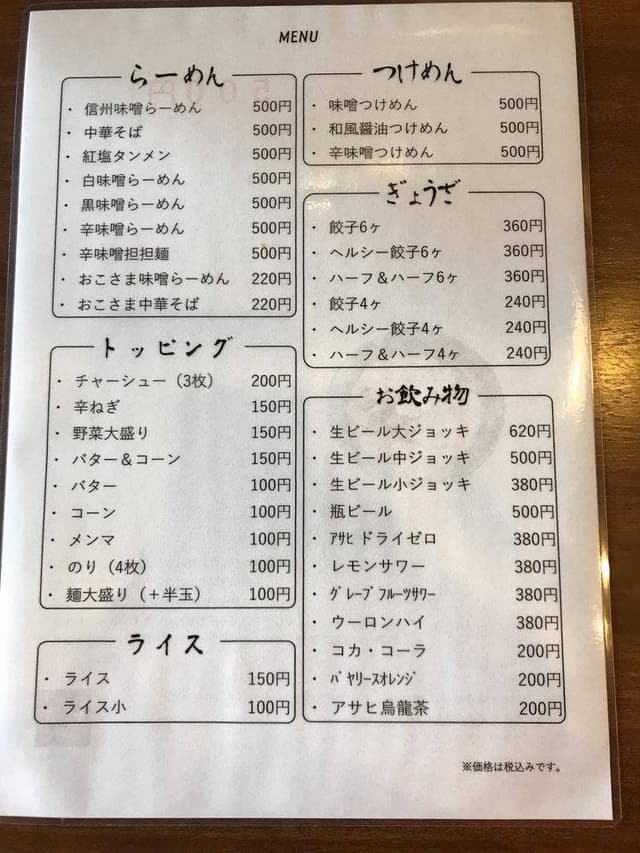 MENU
らーめん
・ 信州味噌らーめん 500円
・ 中華そば 500円
・ 紅塩タンメン 500円
・ 白味噌らーめん 500円
・ 黒味噌らーめん 500円
・ 辛味噌らーめん 500円
・ 辛味噌担担麺 500円
・ おこさま味噌らーめん 220円
・ おこさま中華そば 220円
トッピング
・ チャーシュー（3枚） 200円
・ 辛ねぎ 150円
・ 野菜大盛り 150円
・ バター＆コーン 150円
・ バター 100円
・ コーン 100円
・ メンマ 100円
・ のり（4枚） 100円
・ 麺大盛り（＋半玉） 100円
ライス
・ ライス 150円
・ ライス小 100円
つけめん
・ 味噌つけめん 500円
・ 和風醤油つけめん 500円
・ 辛味噌つけめん 500円
ぎょうざ
・ 餃子6ヶ 360円
・ ヘルシー餃子6ヶ 360円
・ ハーフ＆ハーフ6ヶ 360円
・ 餃子4ヶ 240円
・ ヘルシー餃子4ヶ 240円
・ ハーフ＆ハーフ4ヶ 240円
お飲み物
・ 生ビール大ジョッキ 620円
・ 生ビール中ジョッキ 500円
・ 生ビール小ジョッキ 380円
・ 瓶ビール 500円
・ ｱｻﾋ ドライゼロ 380円
・ レモンサワー 380円
・ ｸﾞﾚｰﾌﾟﾌﾙｰﾂｻﾜｰ 380円
・ ウーロンハイ 380円
・ コカ・コーラ 200円
・ ﾊﾞﾔﾘｰｽｵﾚﾝｼﾞ 200円
・ アサヒ烏龍茶 200円
※価格は税込みです。